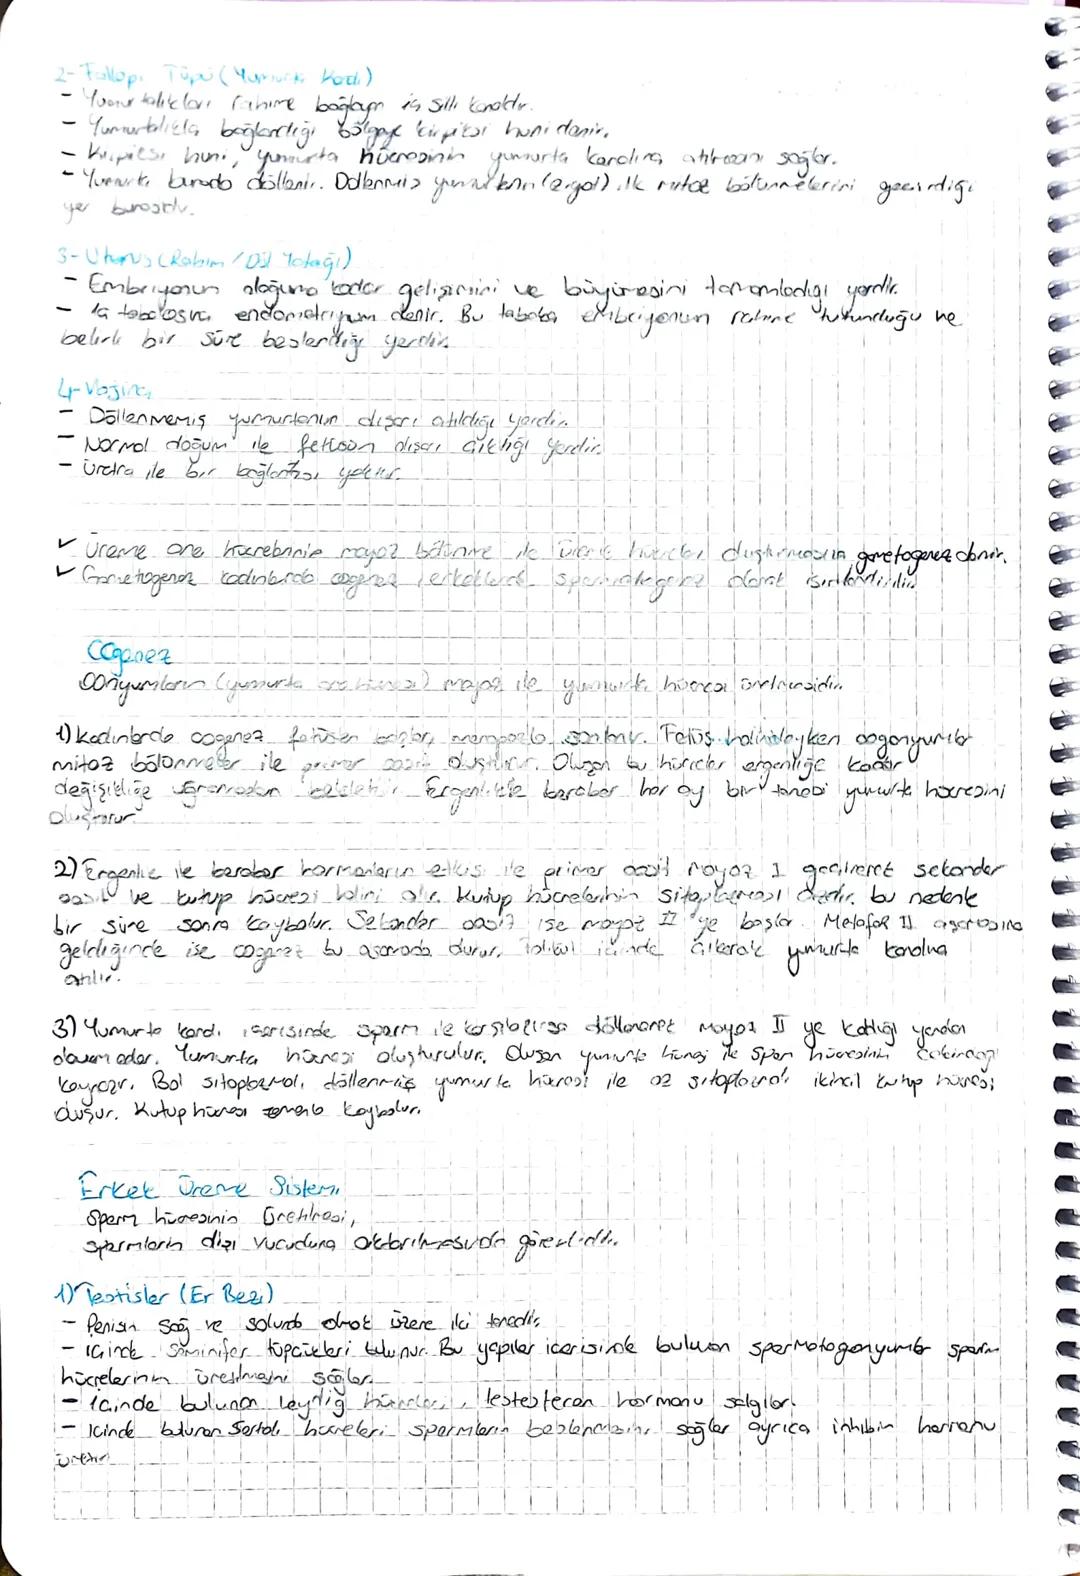 2- Fallopi Tüpü (Yumurta Kanalı)
- Yumurtalıkları rahime bağlayan içi silli kanaldır.
- Yumurtalıkla bağlandığı bölgeye kirpiksi huni denir.
- Kirpiksi huni, yumurta hücresinin yumurta kanalına atılmasını sağlar.
- Yumurta burada döllenir. Döllenmiş yumurtanın (zigot) ilk mitoz bölünmelerini geçirdiği
yer burasıdır.
3- Uterus (Rahim / Döl Yatağı)
- Embriyonun doğuma kadar gelişimini ve büyümesini tamamladığı yerdir.
- İç tabakasına endometriyum denir. Bu tabaka embriyonun rahime tutunduğu ve
belirli bir süre beslendiği yerdir.
4- Vajina
- Döllenmemiş yumurtanın dışarı atıldığı yerdir.
- Normal doğum ile fetüsün dışarı çıktığı yerdir.
- Üretra ile bir bağlantısı yoktur.
✓ Üreme ana hücrelerinin mayoz bölünme ile üreme hücreleri oluşturmasına gametogenez denir.
✓ Gametogenez kadınlarda oogenez, erkeklerde spermatogenez olarak isimlendirilir.
OOgenez
OOnyumların (yumurta ana hücresi) mayoz ile yumurta hücresi üretmesidir.
1) Kadınlarda oogenez fetüsten başlar, menopozla sonlanır. Fetüs halindeyken oogonyumlar
mitoz bölünmeler ile primer oosit oluşturur. Oluşan bu hücreler ergenliğe kadar
değişikliğe uğramadan bekletilir. Ergenlikle beraber her ay bir tanesi yumurta hücresini
oluşturur.
2) Ergenlik ile beraber hormonların etkisi ile primer oosit mayoz I geçirerek sekonder
oosit ve kutup hücresi halini alır. Kutup hücrelerinin sitoplazması azdır, bu nedenle
bir süre sonra kaybolur. Sekonder oosit ise mayoz II ye başlar. Metafaz II aşamasına
geldiğinde ise oogenez bu aşamada durur, folikül içinde çıkarak yumurta kanalına
atılır.
3) Yumurta kanalı içerisinde sperm ile karşılaşırsa döllenerek mayoz II ye kaldığı yerden
devam eder. Yumurta hücresi oluşturulur. Oluşan yumurta hücresi ile sperm hücresinin çekirdeği
kaynaşır. Bol sitoplazmalı, döllenmiş yumurta hücresi ile az sitoplazmalı ikincil kutup hücresi
oluşur. Kutup hücresi zamanla kaybolur.
Erkek Üreme Sistemi
Sperm hücresinin üretilmesi,
spermlerin dişi vücuduna aktarılmasında görevlidir.
1) Testisler (Er Bezi)
- Penisin sağ ve solunda olmak üzere iki tanedir.
- İçinde Seminifer tüpçükleri bulunur. Bu yapılar içerisinde bulunan spermatogonyumlar sperm
hücrelerinin üretilmesini sağlar.
- İçinde bulunan leydig hücreleri, testesteron hormonu salgılar.
- İçinde bulunan Sertoli hücreleri spermlerin beslenmesini sağlar ayrıca inhibin hormonu
üretir.